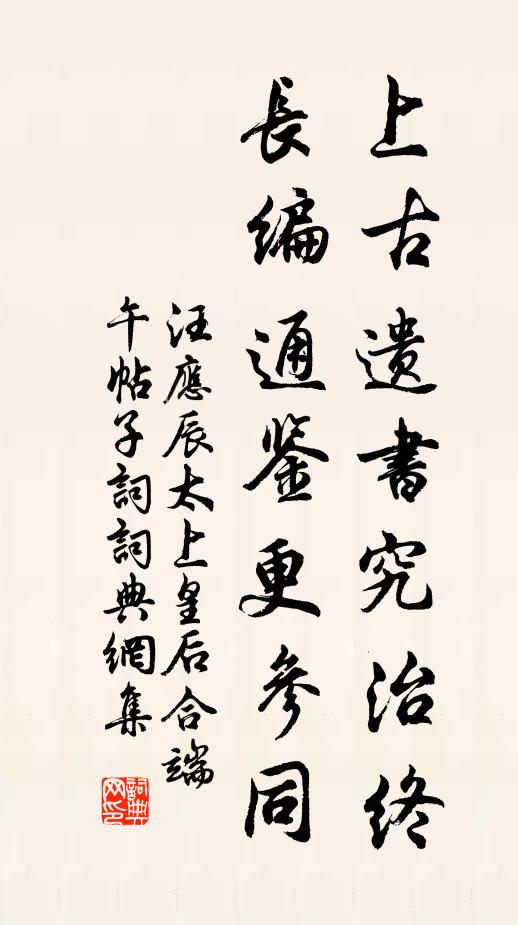 上古遺書究治終
長編通鉴更參同
汪應辰太上皇后合端
午帖子詞詞典網集
詞典网印